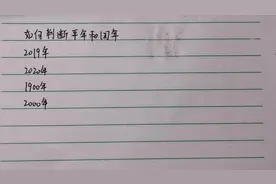 如何判断平年和闰年
2019年
2020年
1900年
2000年